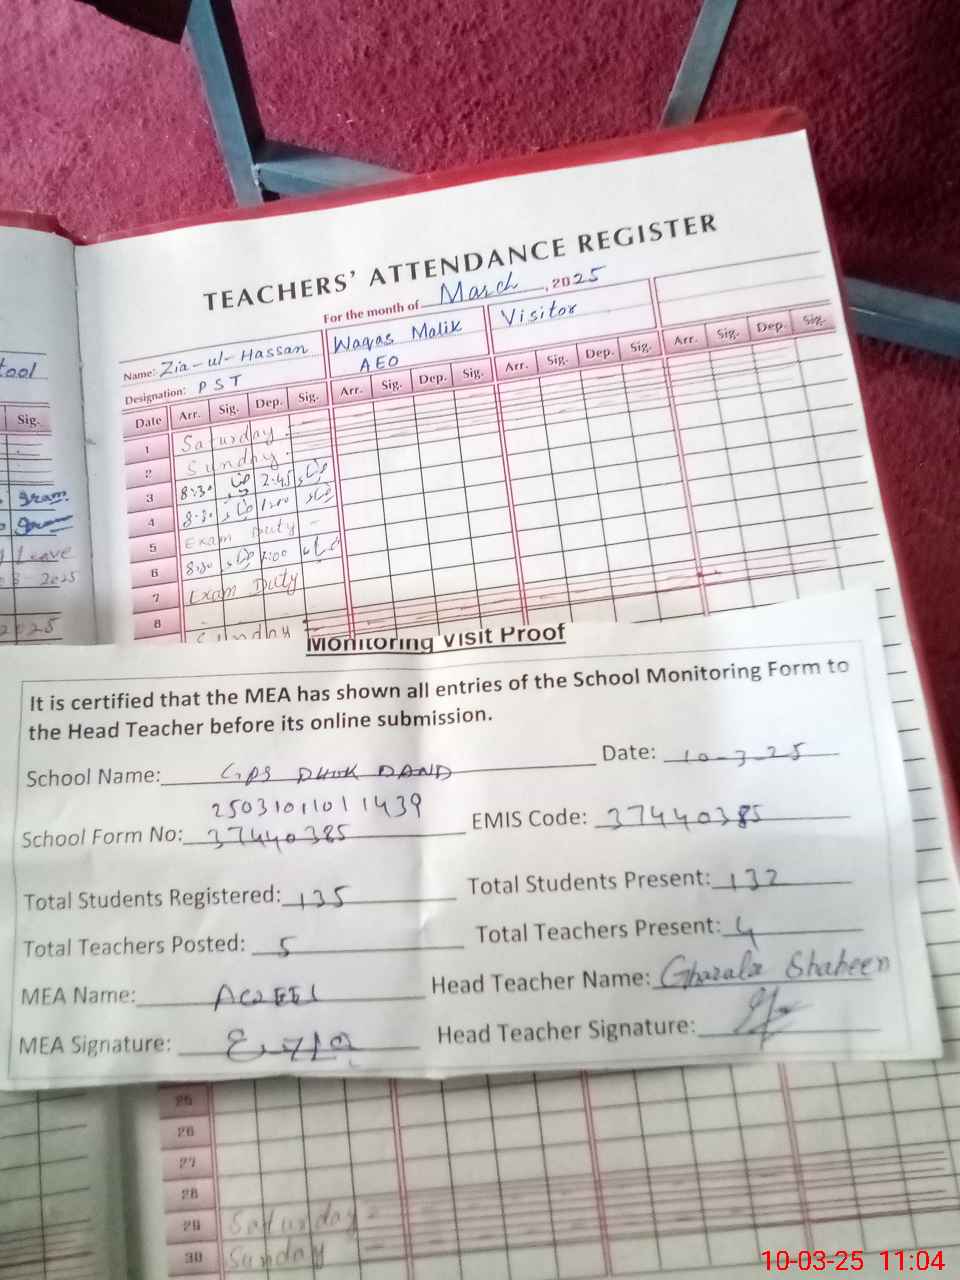 TEACHERS' ATTENDANCE REGISTER
For the month of March, 2025
Name: Zia-ul-Hassan
Waqas Malik
AEO
Visitor
Designation: PST
Date Arr. Sig. Dep. Sig. Arr. Sig. Dep. Sig. Arr. Sig. Dep. Sig. Arr. Sig. Dep. Sig.
1 Saturday -
2 Sunday -
3 8:30 2:45
4 8:30 1:00
5 Exam Duty -
6 8:30
7 Exam Duty
8
Sunday
tool
Sig.
Leave
2025
2025
Monitoring Visit Proof
It is certified that the MEA has shown all entries of the School Monitoring Form to
the Head Teacher before its online submission.
School Name: GPS DHOK DAND Date: 10-3-25
25031011011439
School Form No: 37440385 EMIS Code: 37440385
Total Students Registered: 135 Total Students Present: 132
Total Teachers Posted: 5 Total Teachers Present: 4
MEA Name: Head Teacher Name: Ghazala Shaheen
MEA Signature: Head Teacher Signature:
25
26
27
28
29 Saturday -
30 Sunday
10-03-25 11:04